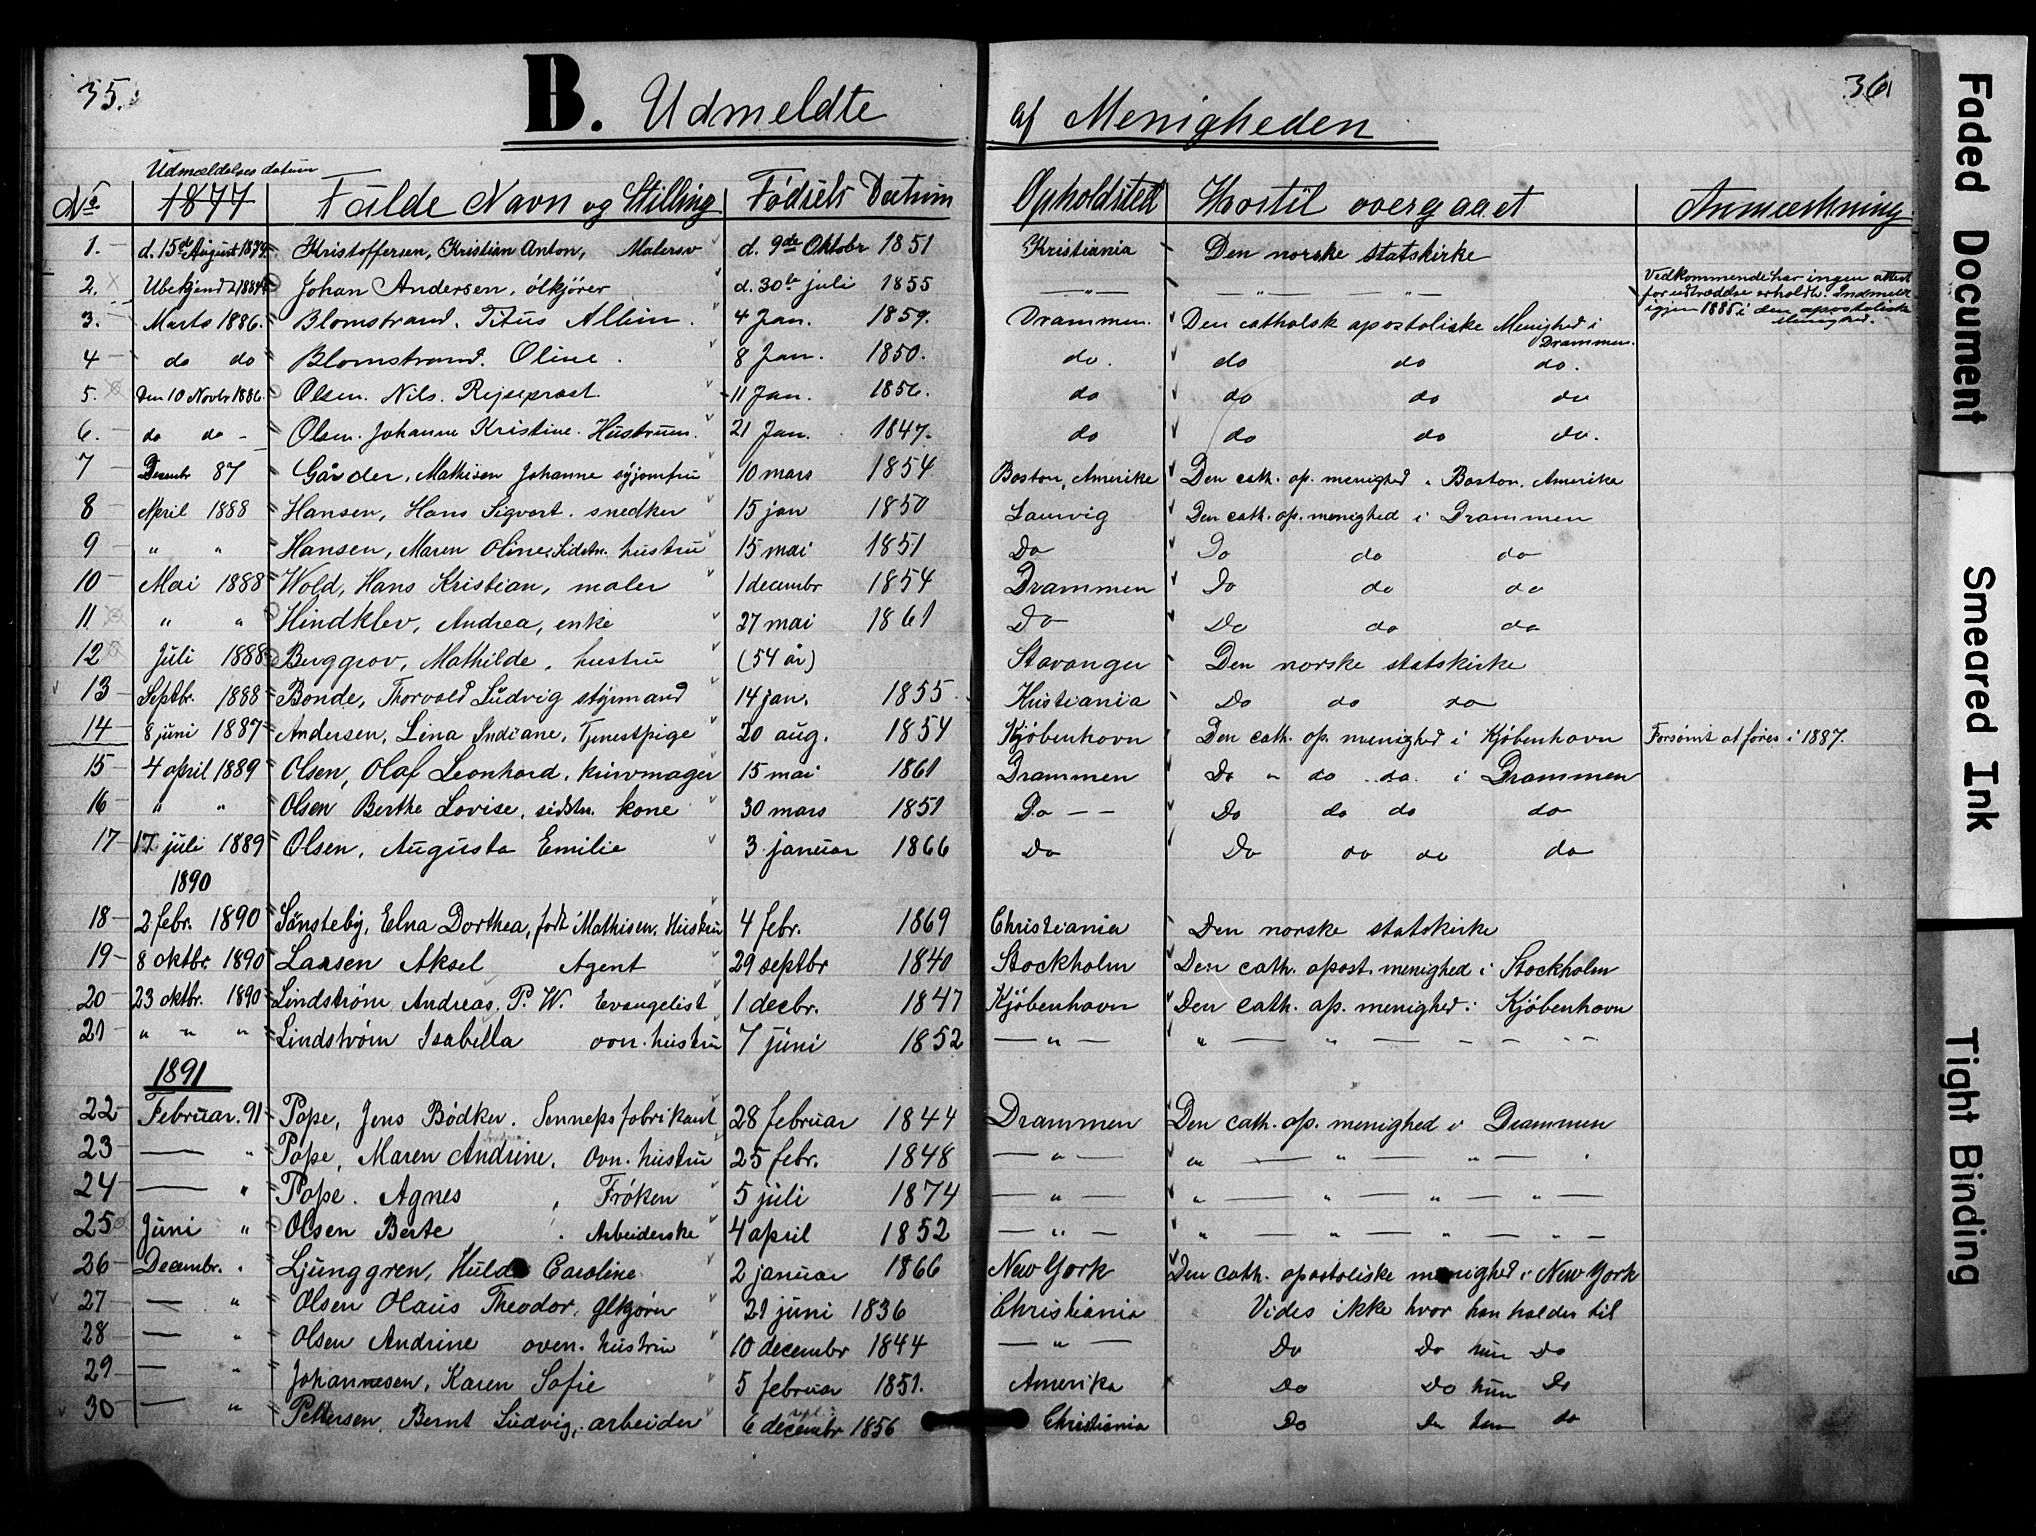 35.
B. Udmeldte af Menigheden
36
Udmældelses datum
No 1877 Fulde Navn og Stilling Fødsels Datum Opholdsted Hvortil overgaaet Anmærkning
1. d. 15de August 1879. Kristoffersen, Kristian Anton, Malersv d. 9de Oktobr 1851 Kristiania Den norske statskirke
2. Ubekjend 1884 Johan Andersen, ölkjörer d. 30te juli 1855 — " — — " — — " — Vedkommende har ingen attest
for udtrædelse erholdt. Indmeldt
igjen 1885 i den apostoliske
Menighed.
3. Marts 1886. Blomstrand. Titus Albin. 4 Jan. 1859. Drammen. Den catholsk apostoliske Menighed i
Drammen.
4 do do Blomstrand. Oline. 8 Jan. 1850. do. do do do.
5. Den 10 Novbr 1886. Olsen. Nils. Rejsepræst. 11 Jan. 1856. do do do do
6. do do - Olsen. Johanne Kristine. Hustruen. 21 Jan. 1847. do do do do.
7 Decembr 87 Gårder, Mathisen Johanne syjomfru 10 mars 1854 Boston, Amerika Den cath. ap. menighed i Boston. Amerika
8 April 1888 Hansen, Hans Sigvart. snedker 15 jan 1850 Laurvig Den cath. ap. menighed i Drammen
9 " " Hansen, Maren Oline, Sidstn. hustru 15 mai 1851 Do Do do do
10 Mai 1888 Wold, Hans Kristian, maler 1 decembr 1854 Drammen Do do do
11 " " Hindklev, Andrea, enke 27 mai 1861 Do Do do do
12 Juli 1888 Berggrov, Mathilde, hustru (54 år) Stavanger Den norske statskirke
13 Septbr. 1888 Bonde, Thorvald Ludvig styrmand 14 jan. 1855 Kristiania Do do do
14 8 juni 1887 Andersen, Lina Indiane, Tjenestpige 20 aug. 1854 Kjöbenhavn Den cath. ap. menighed i Kjöbenhavn Forsømt at føres i 1887.
15 4 april 1889 Olsen, Olaf Leonhard, kurvmager 15 mai 1861 Drammen Do " do do i Drammen
16 " " Olsen Berthe Lovise, sidstn. kone 30 mars 1851 Do — — Do do do do
17 17 juli 1889 Olsen, Augusta Emilie 3 januar 1866 Do Do do do do
1890
18 2 febr. 1890 Sönsteby, Elna Dorthea, født Mathisen, Hustru 4 febr. 1869 Christiania Den norske statskirke
19 8 oktbr. 1890 Laasen Aksel Agent 29 septbr 1840 Stockholm Den cath. apost. menighed i Stockholm
20 23 oktbr. 1890 Lindstrøm, Andreas, P. W. Evangelist 1 decbr. 1847 Kjöbenhavn Den cath. ap. menighed i Kjöbenhavn
21 " " " Lindstrøm Isabella ovn. hustru 7 juni 1852 — " — " — " — — — —
1891
22 Februar. 91 Pape, Jens Bödker. Sennepsfabrikant 28 februar 1844 Drammen Den cath. ap. menighed i Drammen
23 — " Pape, Maren Andrine, Ovn. hustru 25 febr. 1848 — " — " — " — " —
24 — " Pape. Agnes, Frøken 5 juli 1874 — " — " — " — " — " —
25 Juni " Olsen Berte Arbeiderske 4 april 1852 — " — " — " — " — " —
26 Decembr. " Ljunggren, Hulda Caroline 2 januar 1866 New York Den cath. apostoliske menighed i New York
27 — " Olsen Olaus Theodor, 21 juni 1836 Christiania Vides ikke hvor han holder til
28 — " Olsen Andrine oven. hustru 10 decembr 1844 — " — Do Do hun Do
29 — " Johannesen, Karen Sofie 5 februar 1851. Amerika Do Do hun Do
30 — " Pettersen, Bernt Ludvig, arbeider 6 decembr sept 1856 Christiania Do Do han do
Faded Document
Smeared Ink
Tight Binding